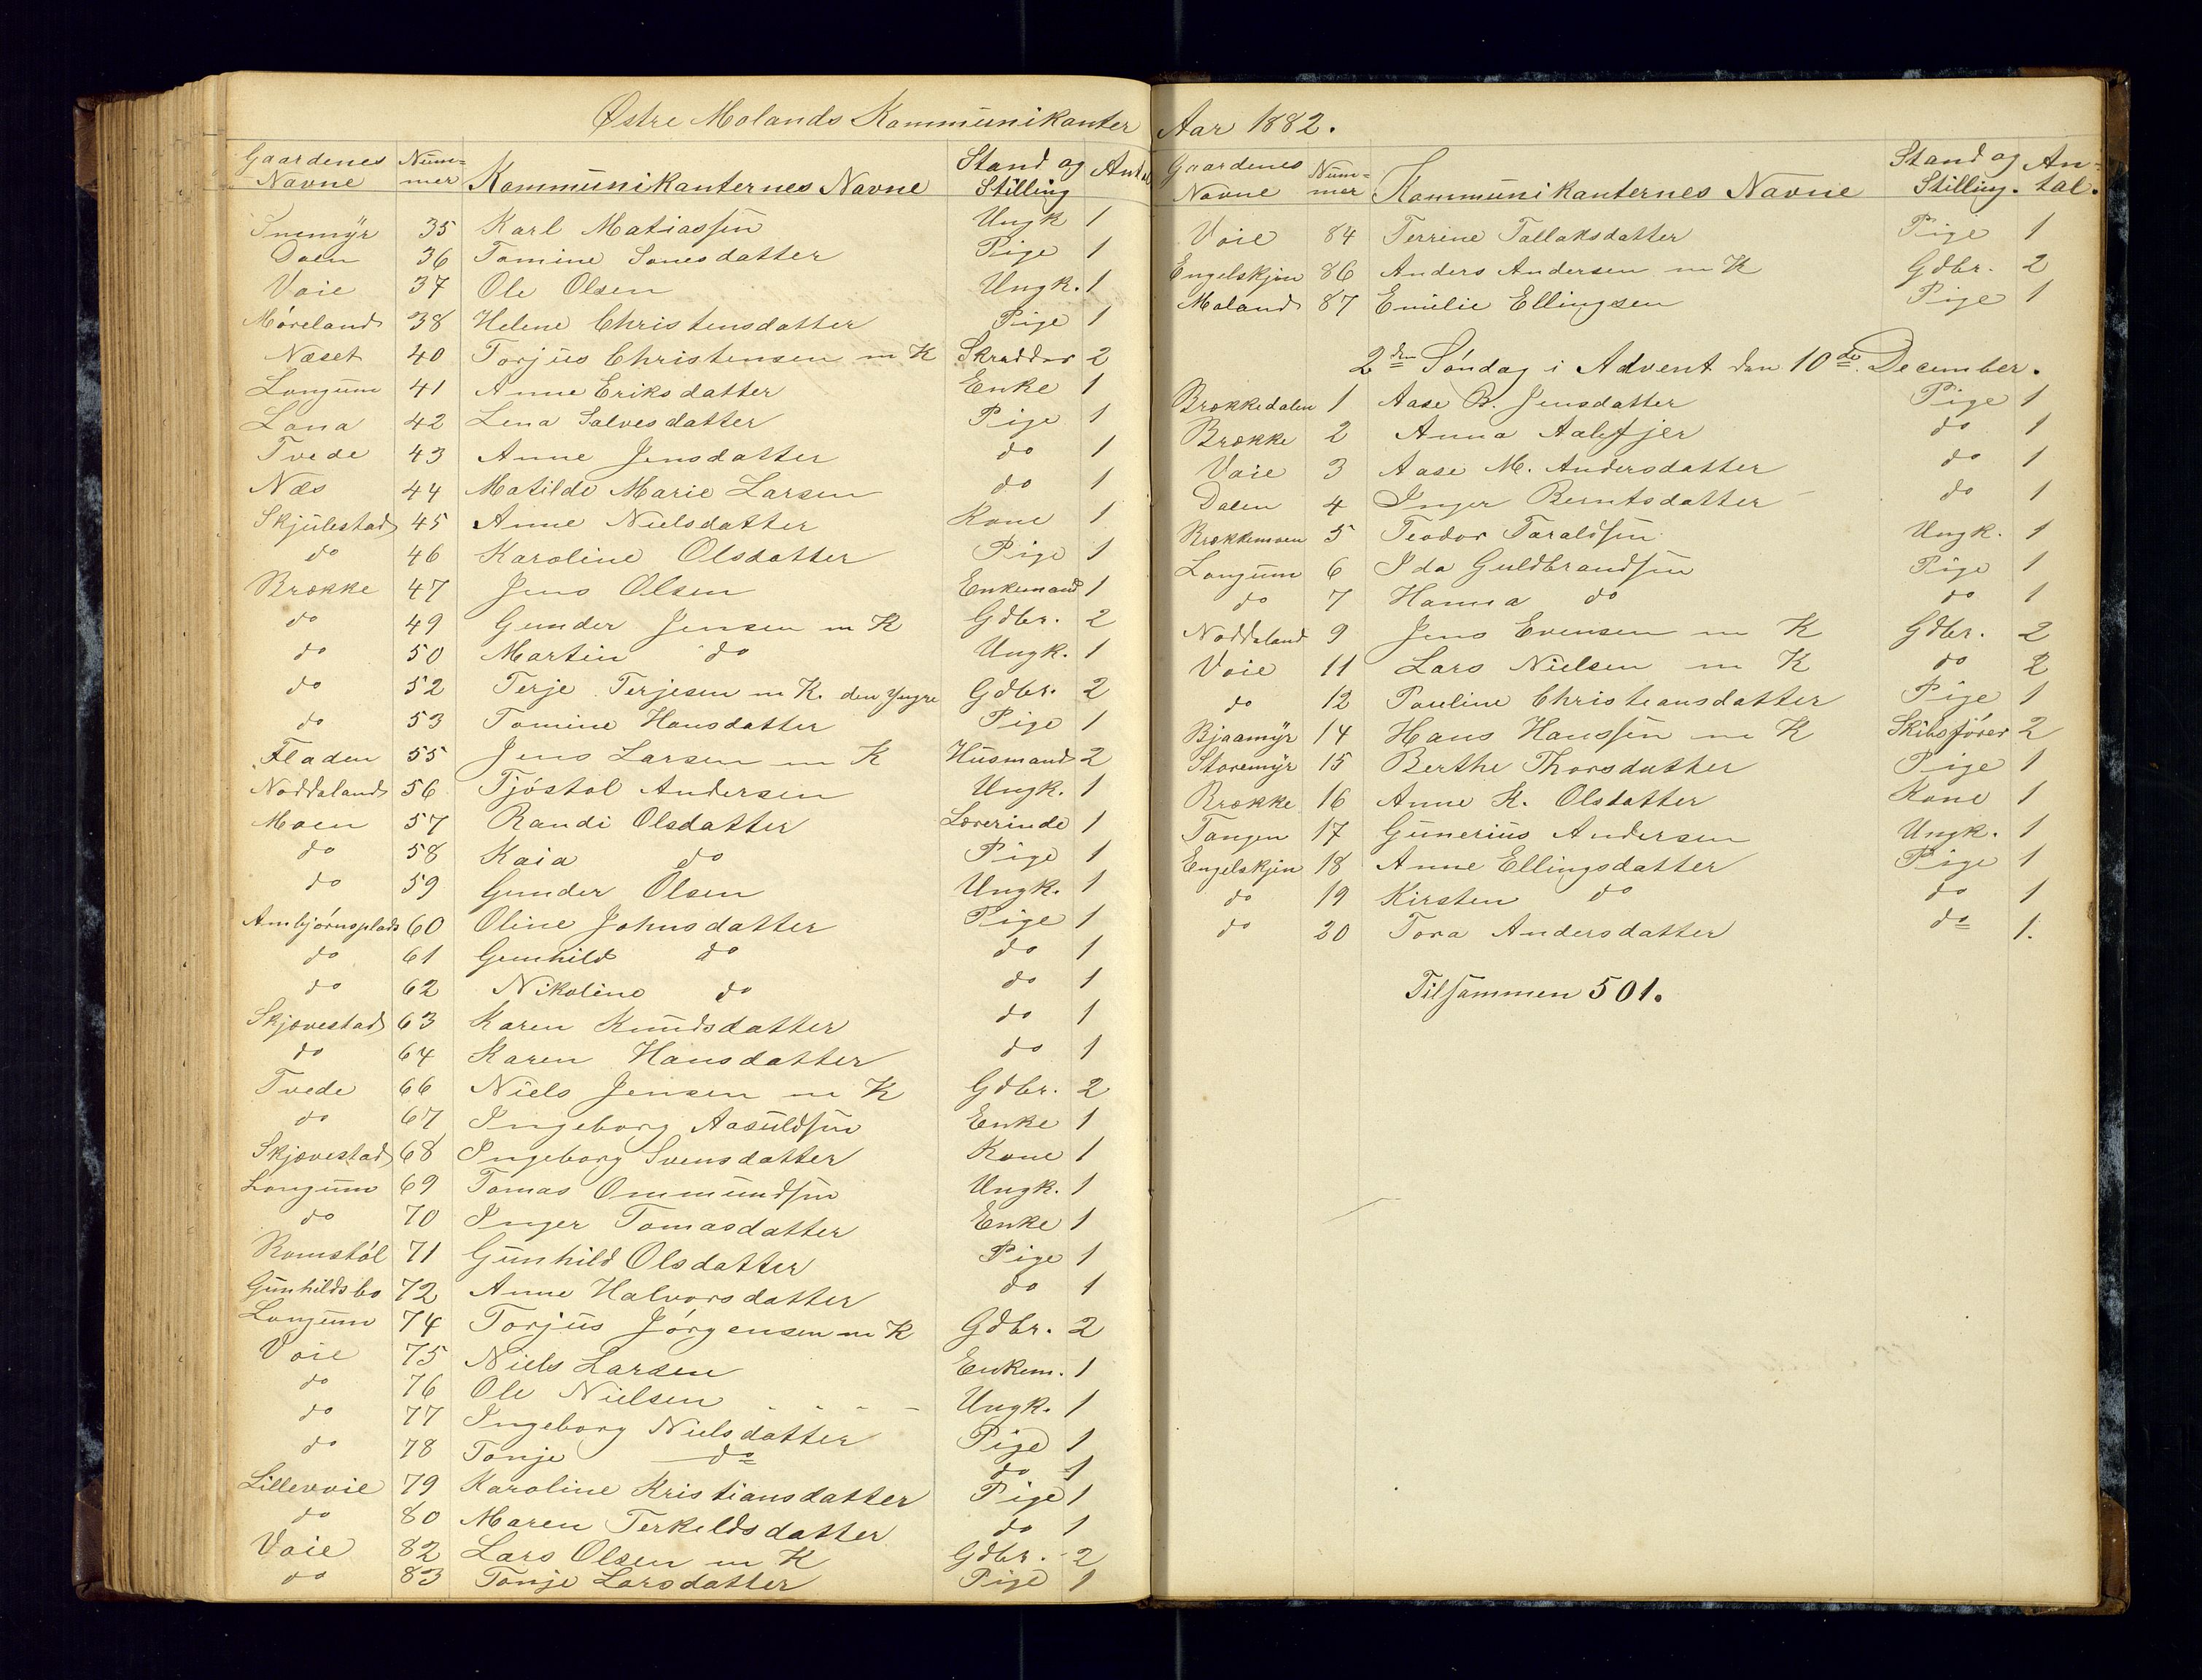 Østre Molands Kommunikanter Aar 1882.
Gaardenes Navne Num=mer Kommunikanternes Navne Stand og Stilling Antal
Snemyr 35 Karl Matiassen Ungk 1
Dalen 36 Tomine Sonesdatter Pige 1
Vaie 37 Ole Olsen Ungk. 1
Møreland 38 Helene Christensdatter Pige 1
Næset 40 Torjus Christensen m K Skrædder 2
Longum 41 Anne Eriksdatter Enke 1
Lona 42 Lena Salvesdatter Pige 1
Tvede 43 Anne Jensdatter do 1
Næs 44 Matilde Marie Larsen do 1
Skjulestad 45 Anne Nielsdatter Kone 1
do 46 Karoline Olsdatter Pige 1
Brække 47 Jens Olsen Enkemand 1
do 49 Gunder Jensen m K Gdbr. 2
do 50 Martin do Ungk. 1
do 52 Terje Terjesen m K. den Yngre Gdbr. 2
do 53 Tomine Hansdatter Pige 1
Fladen 55 Jens Larsen m K Husmand 2
Noddeland 56 Tjøstol Andersen Ungk. 1
Moen 57 Randi Olsdatter Lærerinde 1
do 58 Kaia do Pige 1
do 59 Gunder Olsen Ungk. 1
Ambjørnsplads 60 Oline Johnsdatter Pige 1
do 61 Gunhild do do 1
do 62 Nikoline do do 1
Skjævestad 63 Karen Knudsdatter do 1
do 64 Karen Hansdatter do 1
Tvede 66 Niels Jensen m K Gdbr. 2
do 67 Ingeborg Aasuldsen Enke 1
Skjævestad 68 Ingeborg Svensdatter Kone 1
Longum 69 Tomas Ommundsen Ungk. 1
do 70 Inger Tomasdatter Enke 1
Romstøl 71 Gunhild Olsdatter Pige 1
Gunhildsbo 72 Anne Halvorsdatter do 1
Longum 74 Torjus Jörgensen m K Gdbr. 2
Vaie 75 Niels Larsen Enkem. 1
do 76 Ole Nielsen Ungk. 1
do 77 Ingeborg Nielsdatter Pige 1
do 78 Tonje do do 1
Lillevaie 79 Karoline Kristiansdatter Pige 1
do 80 Maren Terkeldsdatter do 1
Vaie 82 Lars Olsen m K Gdbr. 2
do 83 Tonje Larsdatter Pige 1
Gaardenes Navne Num=mer Kommunikanternes Navne Stand og Stilling. An=tal.
Vaie 84 Terrine Tallaksdatter Pige 1
Engelskjøn 86 Anders Andersen m K Gdbr. 2
Moland 87 Emilie Ellingsen Pige 1
2den Søndag i Advent den 10de December.
Brækkedalen 1 Aase B. Jensdatter Pige 1
Brække 2 Anna do 1
Vaie 3 Aase M. Andersdatter do 1
Dalen 4 Inger Berntsdatter do 1
Brækkemoen 5 Teodor Taraldsen Ungk. 1
Longum 6 Ida Guldbrandsen Pige 1
do 7 Hanna do do 1
Noddeland 9 Jens Evensen m K Gdbr. 2
Vaie 11 Lars Nielsen m K do 2
do 12 Pauline Christiansdatter Pige 1
Bjaamyr 14 Hans Hanssen m K Skibsfører 2
Storemyr 15 Berthe Thorsdatter Pige 1
Brække 16 Anne K. Olsdatter Kone 1
Tangen 17 Gunerius Andersen Ungk. 1
Engelskjøn 18 Anne Ellingsdatter Pige 1
do 19 Kirsten do do 1
do 20 Tora Andersdatter do 1.
Tilsammen 501.